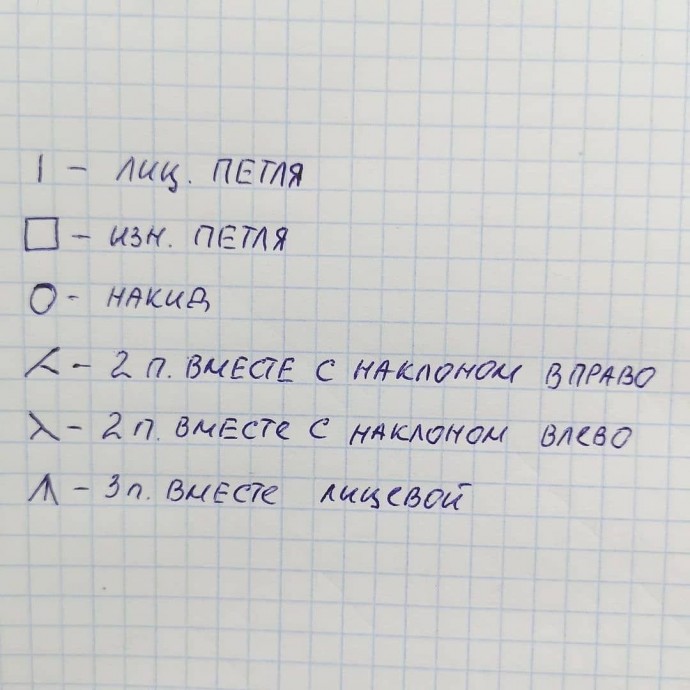 | – ЛИЦ. ПЕТЛЯ
□ – ИЗН. ПЕТЛЯ
O – НАКИД
⋌ – 2 П. ВМЕСТЕ С НАКЛОНОМ ВПРАВО
λ – 2 П. ВМЕСТЕ С НАКЛОНОМ ВЛЕВО
⩚ – 3 П. ВМЕСТЕ ЛИЦЕВОЙ